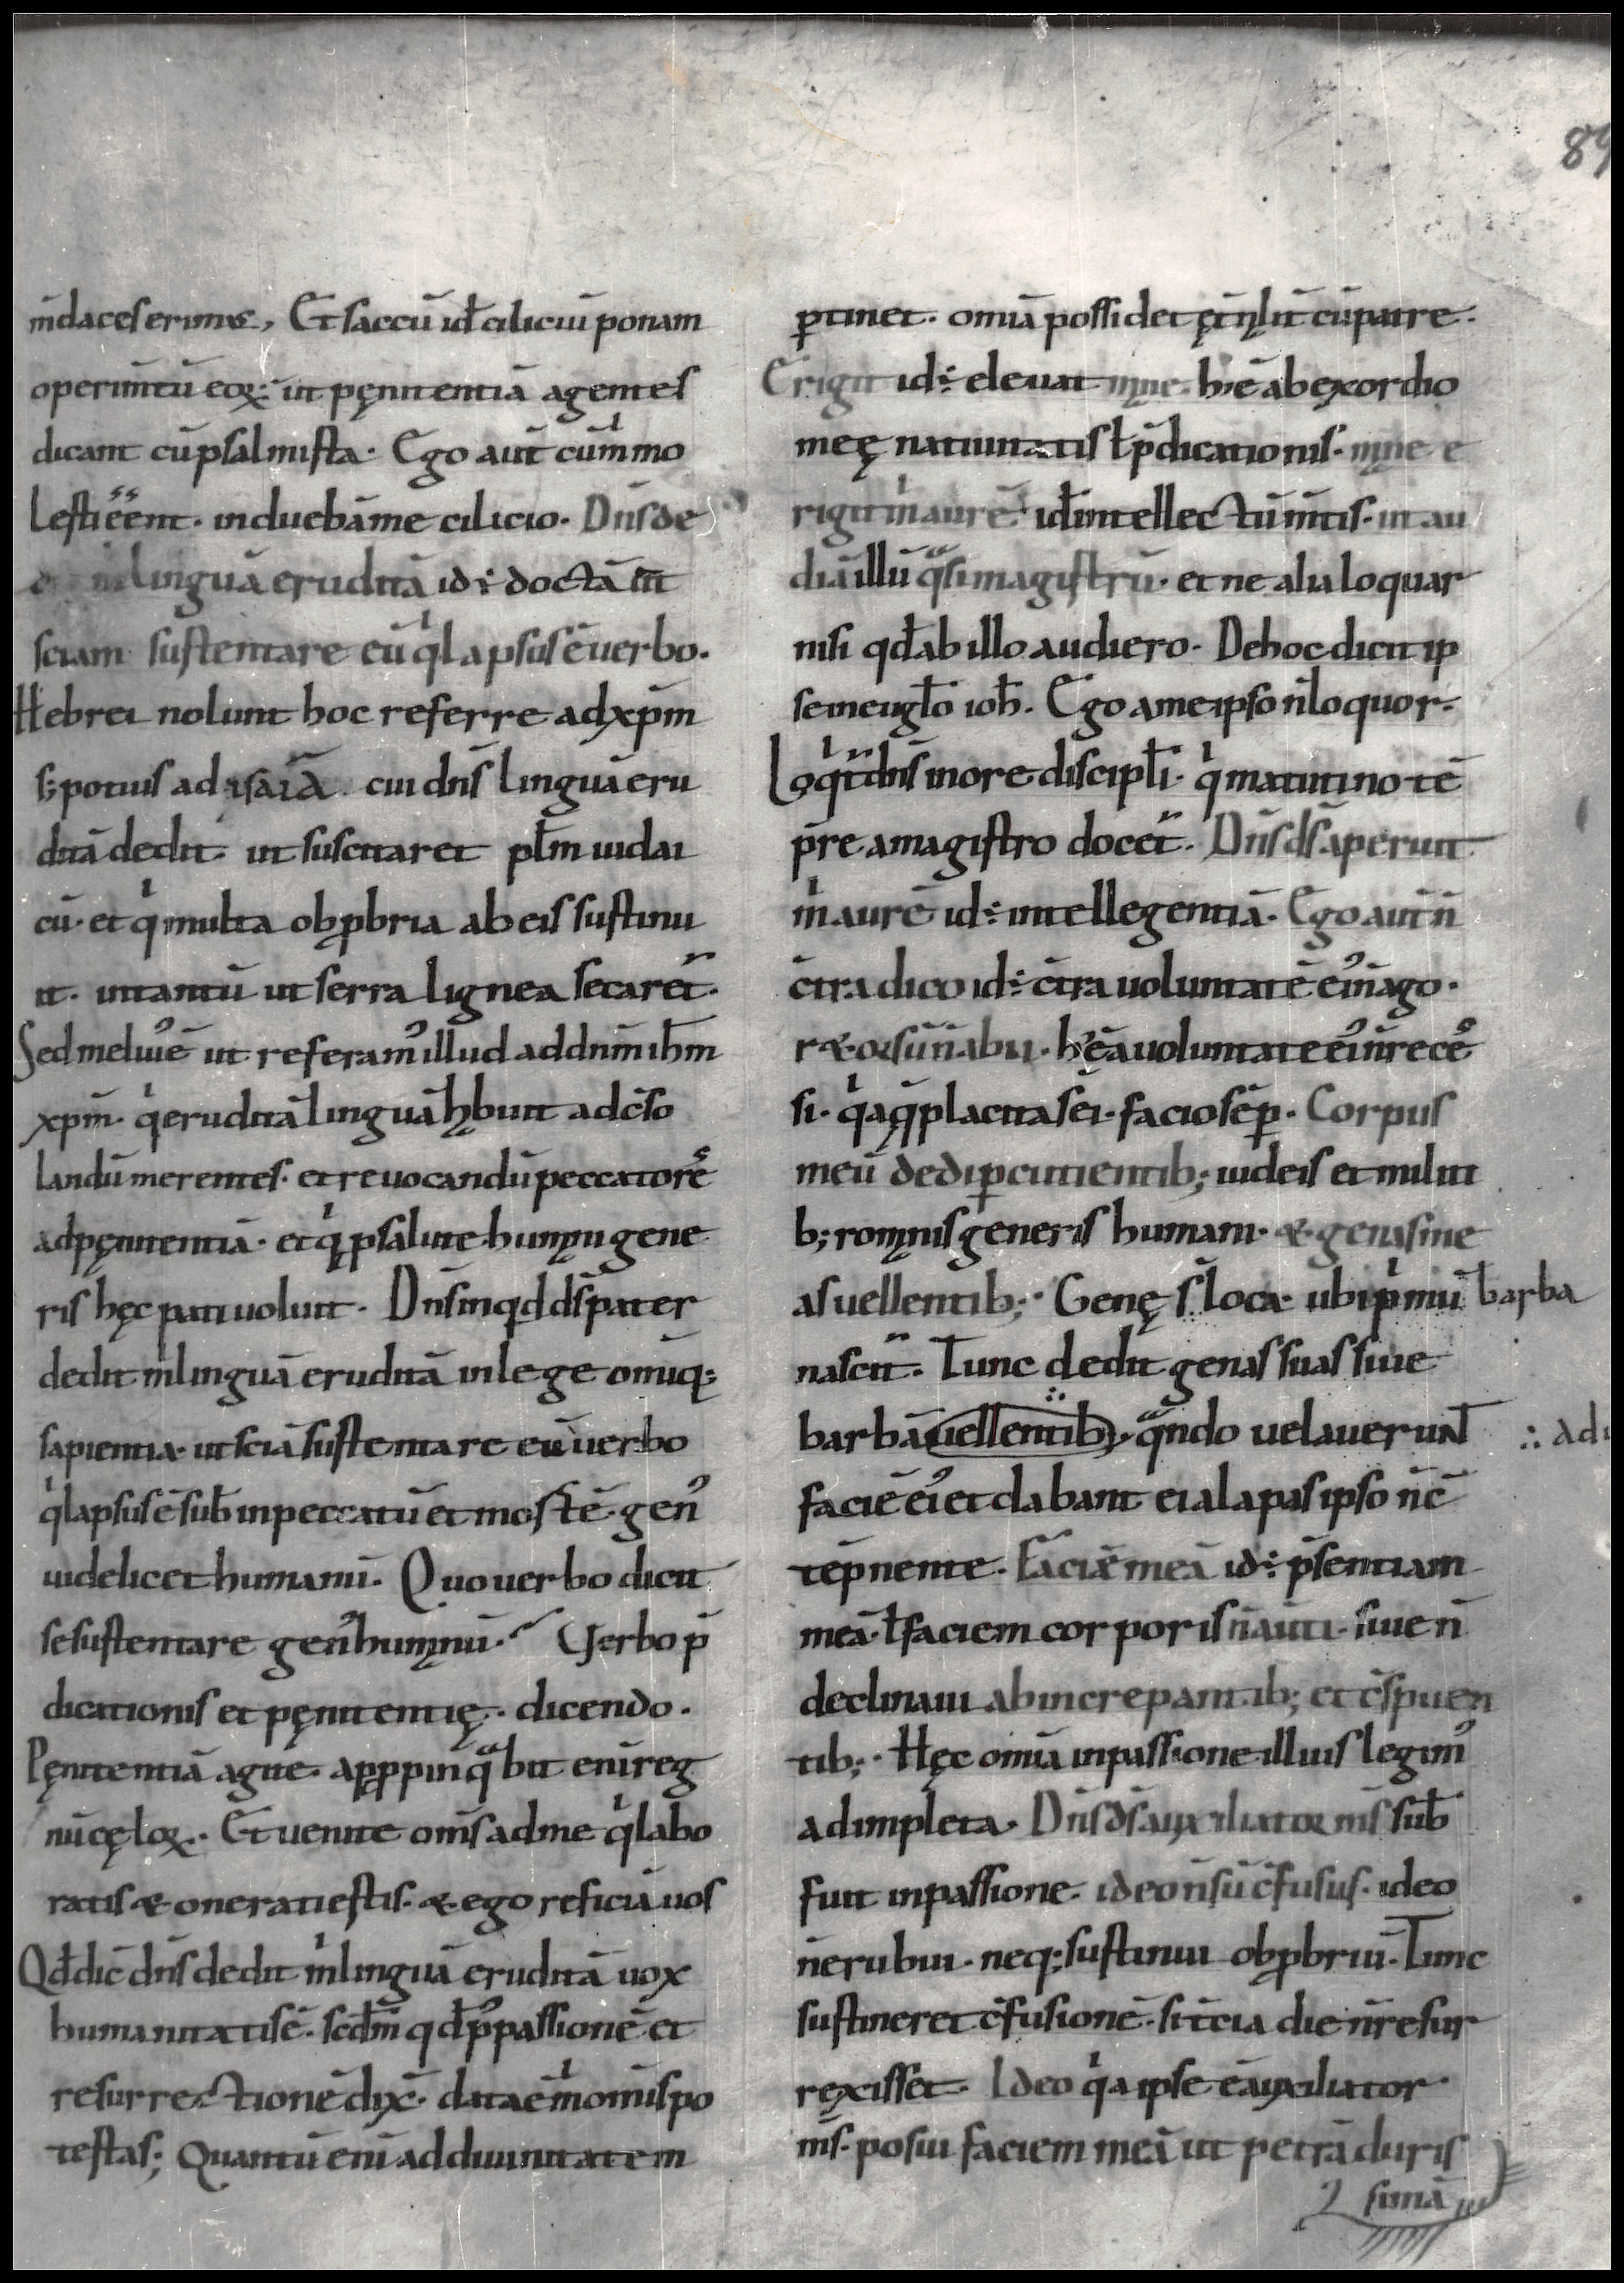 89
m̄daces erimus, Et saccū id ē ciliciū ponam
operim̄tū eoꝝ. ut pęnitentiā agentes
dicant cū psalmista. Ego aut̄ cum mo
lesti eēnt. induebā me cilicio. Dn̄s de
linguā eruditā id÷ doctā ut
sciam sustentare eū qͥ lapsus ē uerbo.
Hebrei nolunt hoc referre ad xp̄m
s; potius ad isaiā. cui dn̄s linguā eru
ditā dedit. ut suscitaret pl̄m iudai
cū. et qͥ multa obꝓbria ab eis sustinu
it. intantū ut serra lignea secaret᷑.
Sed melius ē ut referamꝰ illud ad dn̄m ih̄m
xp̄m. qͥ eruditā linguā hębuit ad c̄so
landū merentes. et reuocandū peccatorē
ad pęnitentiā. et qͥ ꝓ salute humąni gene
ris hęc pati uoluit. Dn̄s inquid ds̄ pater
dedit m̄ linguā eruditā in lege omniq;
sapientia. ut sciā sustentare eū uerbo
qͥ lapsus ē sub̄ in peccatū et mostē. genꝰ
uidelicet humanū. Quo uerbo dicit
se sustentare genꝰ humąnū. Uerbo p̄
dicationis et pęnitentię. dicendo.
Pęnitentiā agite. apꝓpinqͣbit eni reg
nū cęloꝝ. Et uenite om̄s ad me qͥ labo
ratis & onerati estis. & ego reficiā uos
Qd̄ dic̄ dn̄s dedit mͥ linguā eruditā uox
humanitatis ē. scd̄m qd̄ pꝰ passionē et
resurrectionē dix̄. data ē mͥ omnis po
testas; Quantū eni ad diuinitatem
ꝑtinet. omiā possidet ęq̄lit̄ cū patre.
Erigit id÷ eleuat mąne. h̄ ē ab exordio
meę natiuitatis ł p̄dicationis. mąne e
rigit mͥ aurē id ē intellectū m̄tis. ut au
diā illū qͣsi magistrū. et ne alia loquar
nisi qd̄ ab illo audiero. De hoc dicit ip
se in eugl̄o ioh̄. Ego a me ipso n̄ loquor.
Loqͥt᷑ dn̄s more discipl̄i. qͥ matutino tē
p̄re a magistro docet᷑. Dn̄s ds̄ aperuit
mͥ aurē id÷ intellegentiā. Ego aut̄ n̄
c̄tra dico id÷ c̄tra uoluntatē eiꝰ n̄ ago.
retrorsū n̄ abii. h̄ ē a uoluntate eiꝰ n̄ reces
si. qͥa q̨ placita s̄ ei. facio sēꝑ. Corpus
meū dedi ꝑcutientib; iudeis et militi
b; romąnis generis humani. & genas me
as uellentib;. Genę s̄ loca ubi pͥmū barba
nascit᷑. Tunc dedit genas suas siue
barbā uellentib;. qͣndo uelauerunt
faciē eiꝰ et dabant ei alapas ipso n̄ c̄
tēpnente. Faciē meā id÷ p̄sentiam
meā. ł faciem corporis n̄ auti. siue n̄
declinaui ab increpantib; et c̄spuen
tib;. Hęc omīa in passione illius legimꝰ
adimpleta. Dn̄s ds̄ auxiliator m̄s sub̄
fuit in passione. ideo n̄ sū c̄fusus. ideo
n̄ erubui. neq; sustinui obꝓbriū. Tunc
sustineret c̄fusionē. si t̄cia die n̄ resur
rexisset. Ideo qͥa ipse ē auxiliator
m̄s. posui faciem meā ut petrā duris
simā